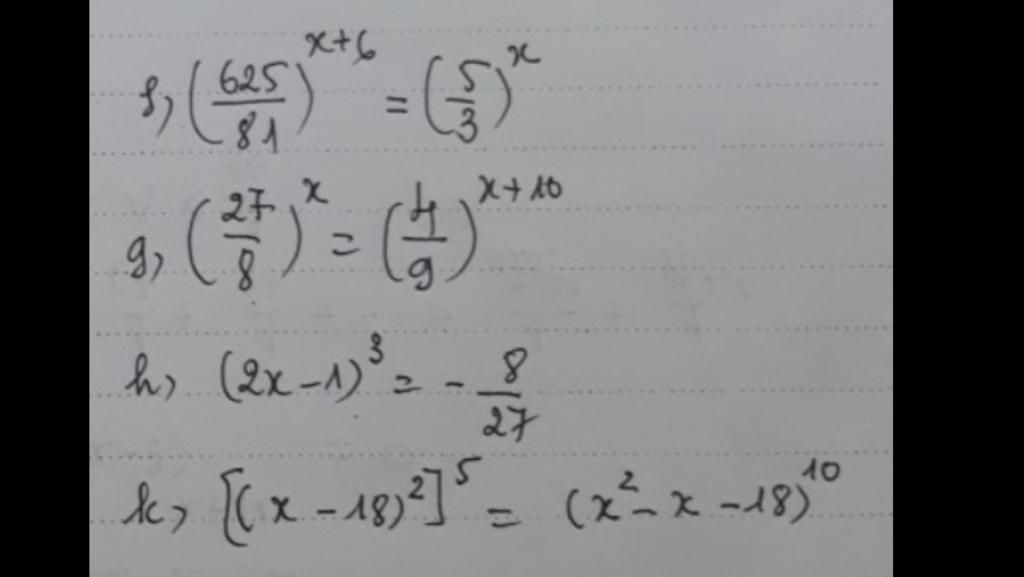 f, (625/81)^(x+6) = (5/3)^x
g, (27/8)^x = (4/9)^(x+10)
h, (2x-1)^3 = - 8/27
k, [(x-18)^2]^5 = (x^2-x-18)^10